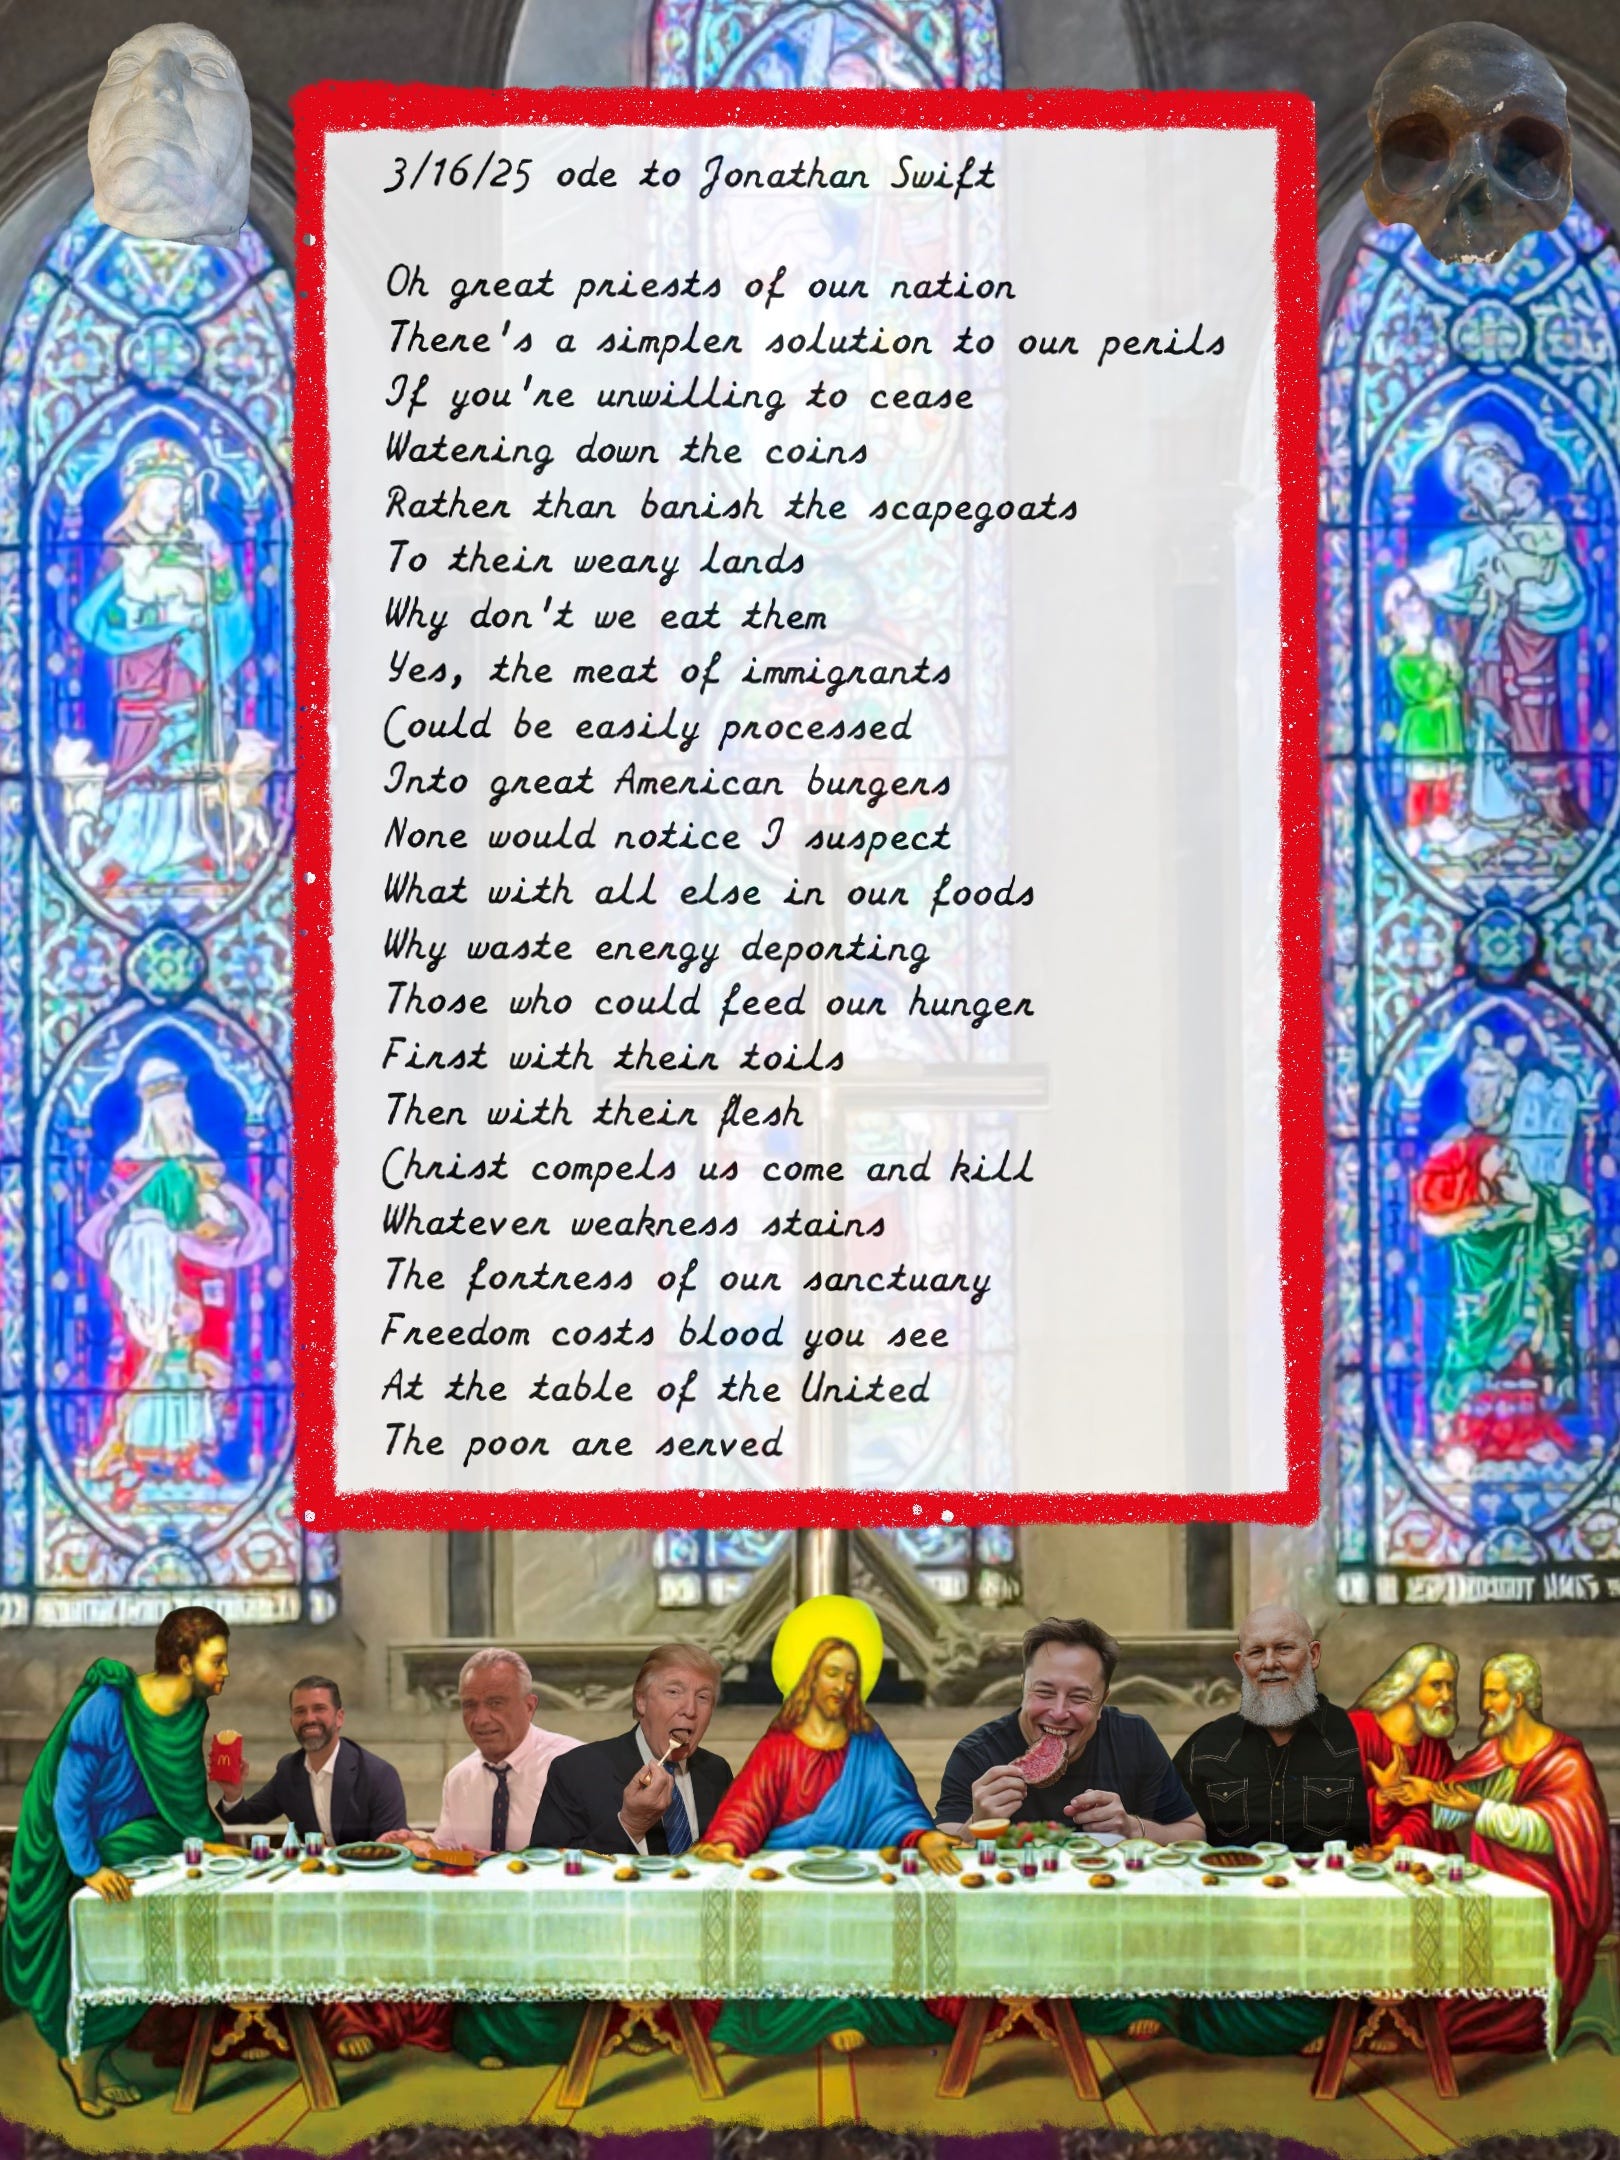 3/16/25 ode to Jonathan Swift
Oh great priests of our nation
There's a simpler solution to our perils
If you're unwilling to cease
Watering down the coins
Rather than banish the scapegoats
To their weary lands
Why don't we eat them
Yes, the meat of immigrants
Could be easily processed
Into great American burgers
None would notice I suspect
What with all else in our foods
Why waste energy deporting
Those who could feed our hunger
First with their toils
Then with their flesh
Christ compels us come and kill
Whatever weakness stains
The fortress of our sanctuary
Freedom costs blood you see
At the table of the United
The poor are served